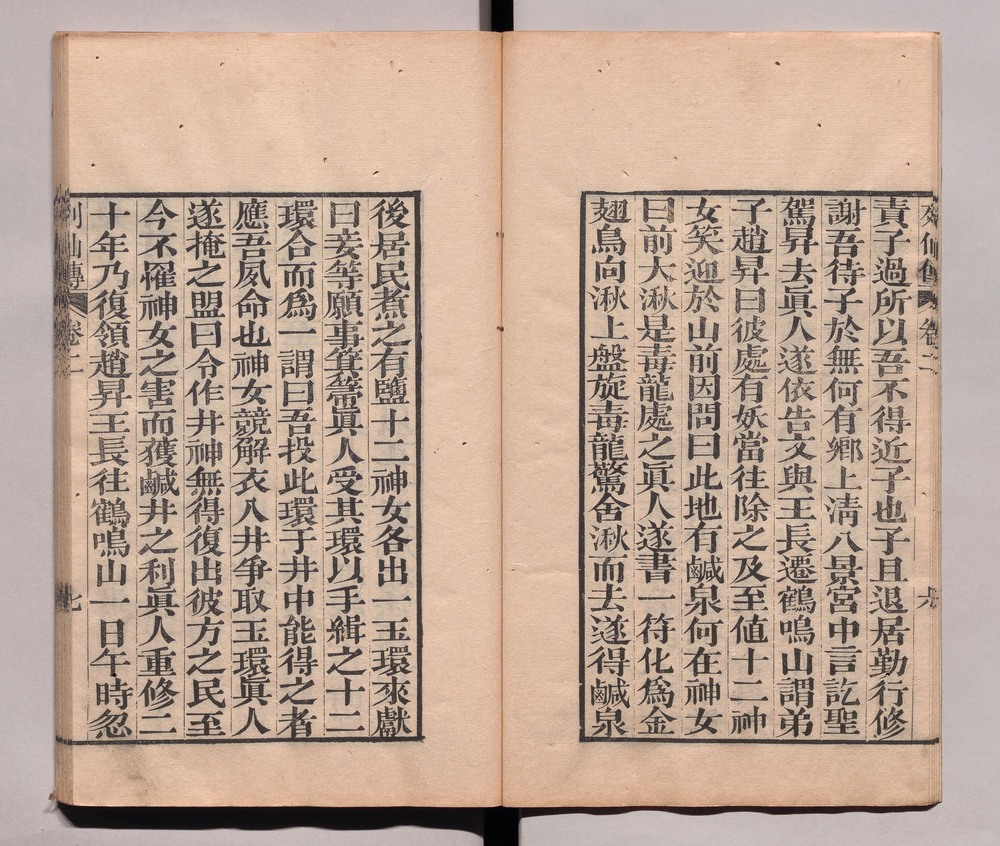 列仙傳 卷二 六
責子過所以吾不得近子也子且退居勤行修
謝吾待子於無何有鄉上清八景宮中言訖聖
駕昇去眞人遂依告文與王長遷鶴鳴山謂弟
子趙昇曰彼處有妖當往除之及至値十二神
女笑迎於山前因問曰此地有鹹泉何在神女
曰前大湫是毒龍處之眞人遂書一符化爲金
翅鳥向湫上盤旋毒龍驚舍湫而去遂得鹹泉
後居民煮之有鹽十二神女各出一玉環來獻
曰妾等願事箕箒眞人受其環以手緝之十二
環合而爲一謂曰吾投此環于井中能得之者
應吾夙命也神女競解衣入井爭取玉環眞人
遂掩之盟曰令作井神無得復出彼方之民至
今不罹神女之害而獲鹹井之利眞人重修二
十年乃復領趙昇王長往鶴鳴山一日午時忽
列仙傳 卷二 七